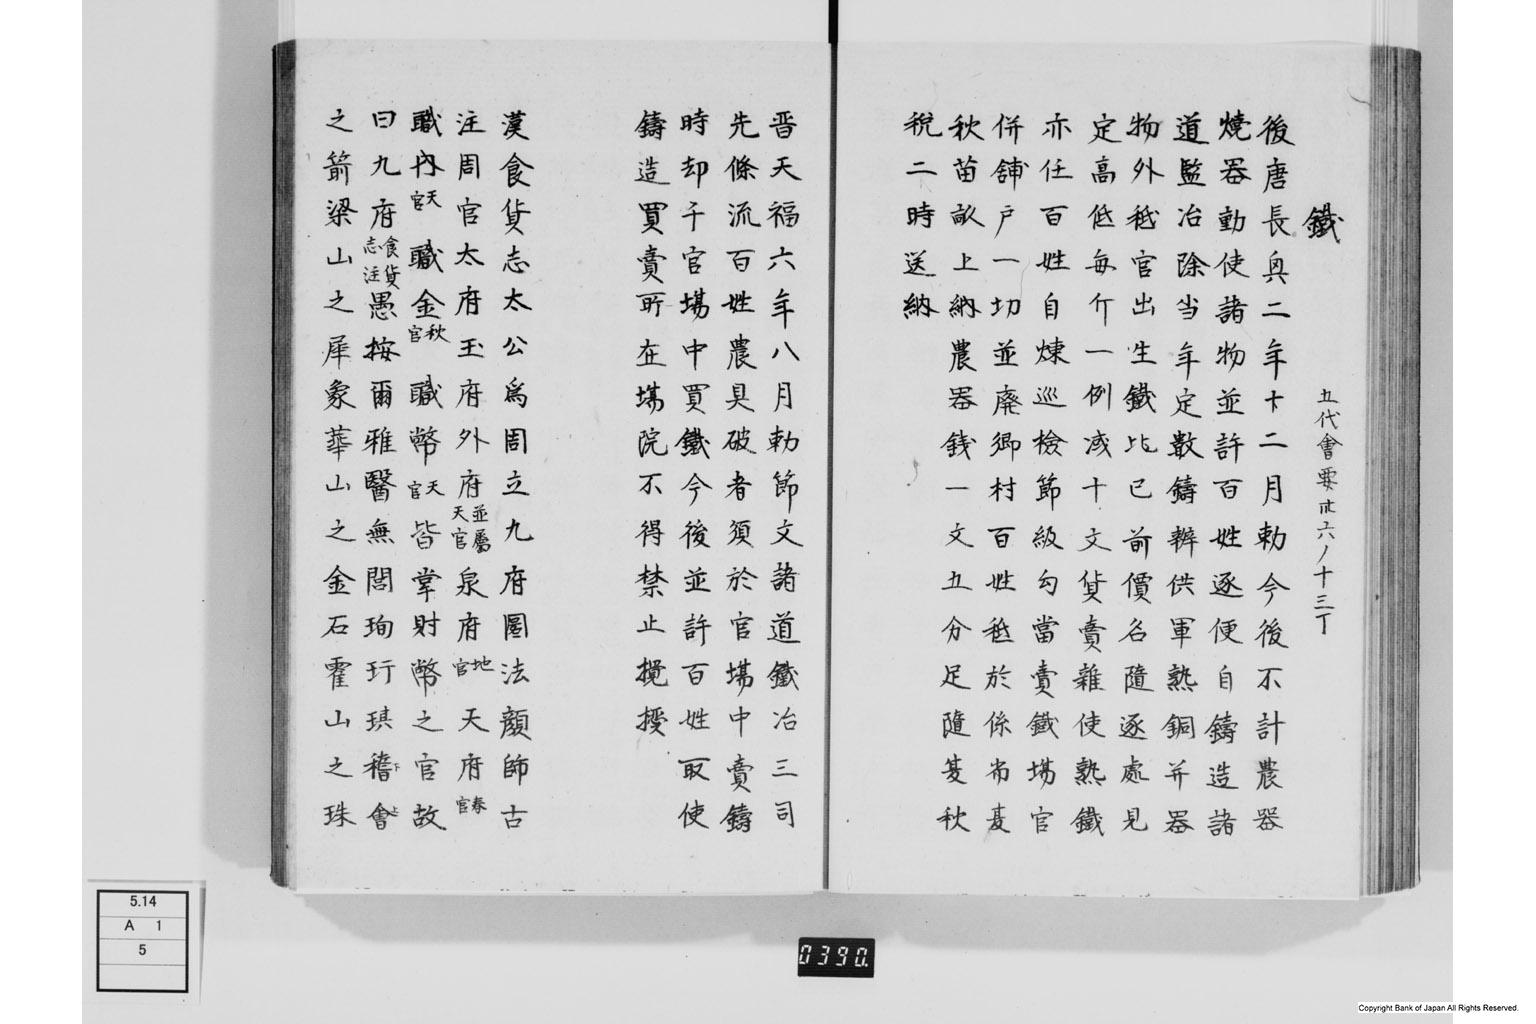 鐵
五代會要廿六ノ十三丁
後唐長興二年十二月勅今後不計農器
燒器動使諸物並許百姓逐便自鑄造諸
道監冶除当年定數鑄辦供軍熟銅并器
物外秪官出生鐵比已前價各隨逐處見
定高低每斤一例减十文貨賣雜使熟鐵
亦任百姓自煉巡檢節級勾當賣鐵場官
併舖户一切並廃鄉村百姓秪於係省夏
秋苗畝上納農器錢一文五分足隨夏秋
稅二時送納
晋天福六年八月勅節文諸道鐵冶三司
先條流百姓農具破者須於官場中賣鑄
時却于官場中買鐵今後並許百姓取便
鑄造買賣所在場院不得禁止攪擾
漢食貨志太公為周立九府圜法顏師古
注周官太府玉府外府並屬天官泉府地官天府春官
職內天官職金秋官職幣天官皆掌財幣之官故
曰九府食貨志注愚按爾雅醫無閭珣玗琪䅲下會上
之箭梁山之犀象華山之金石霍山之珠
5.14
A 1
5
0390.
Copyright Bank of Japan All Rights Reserved.